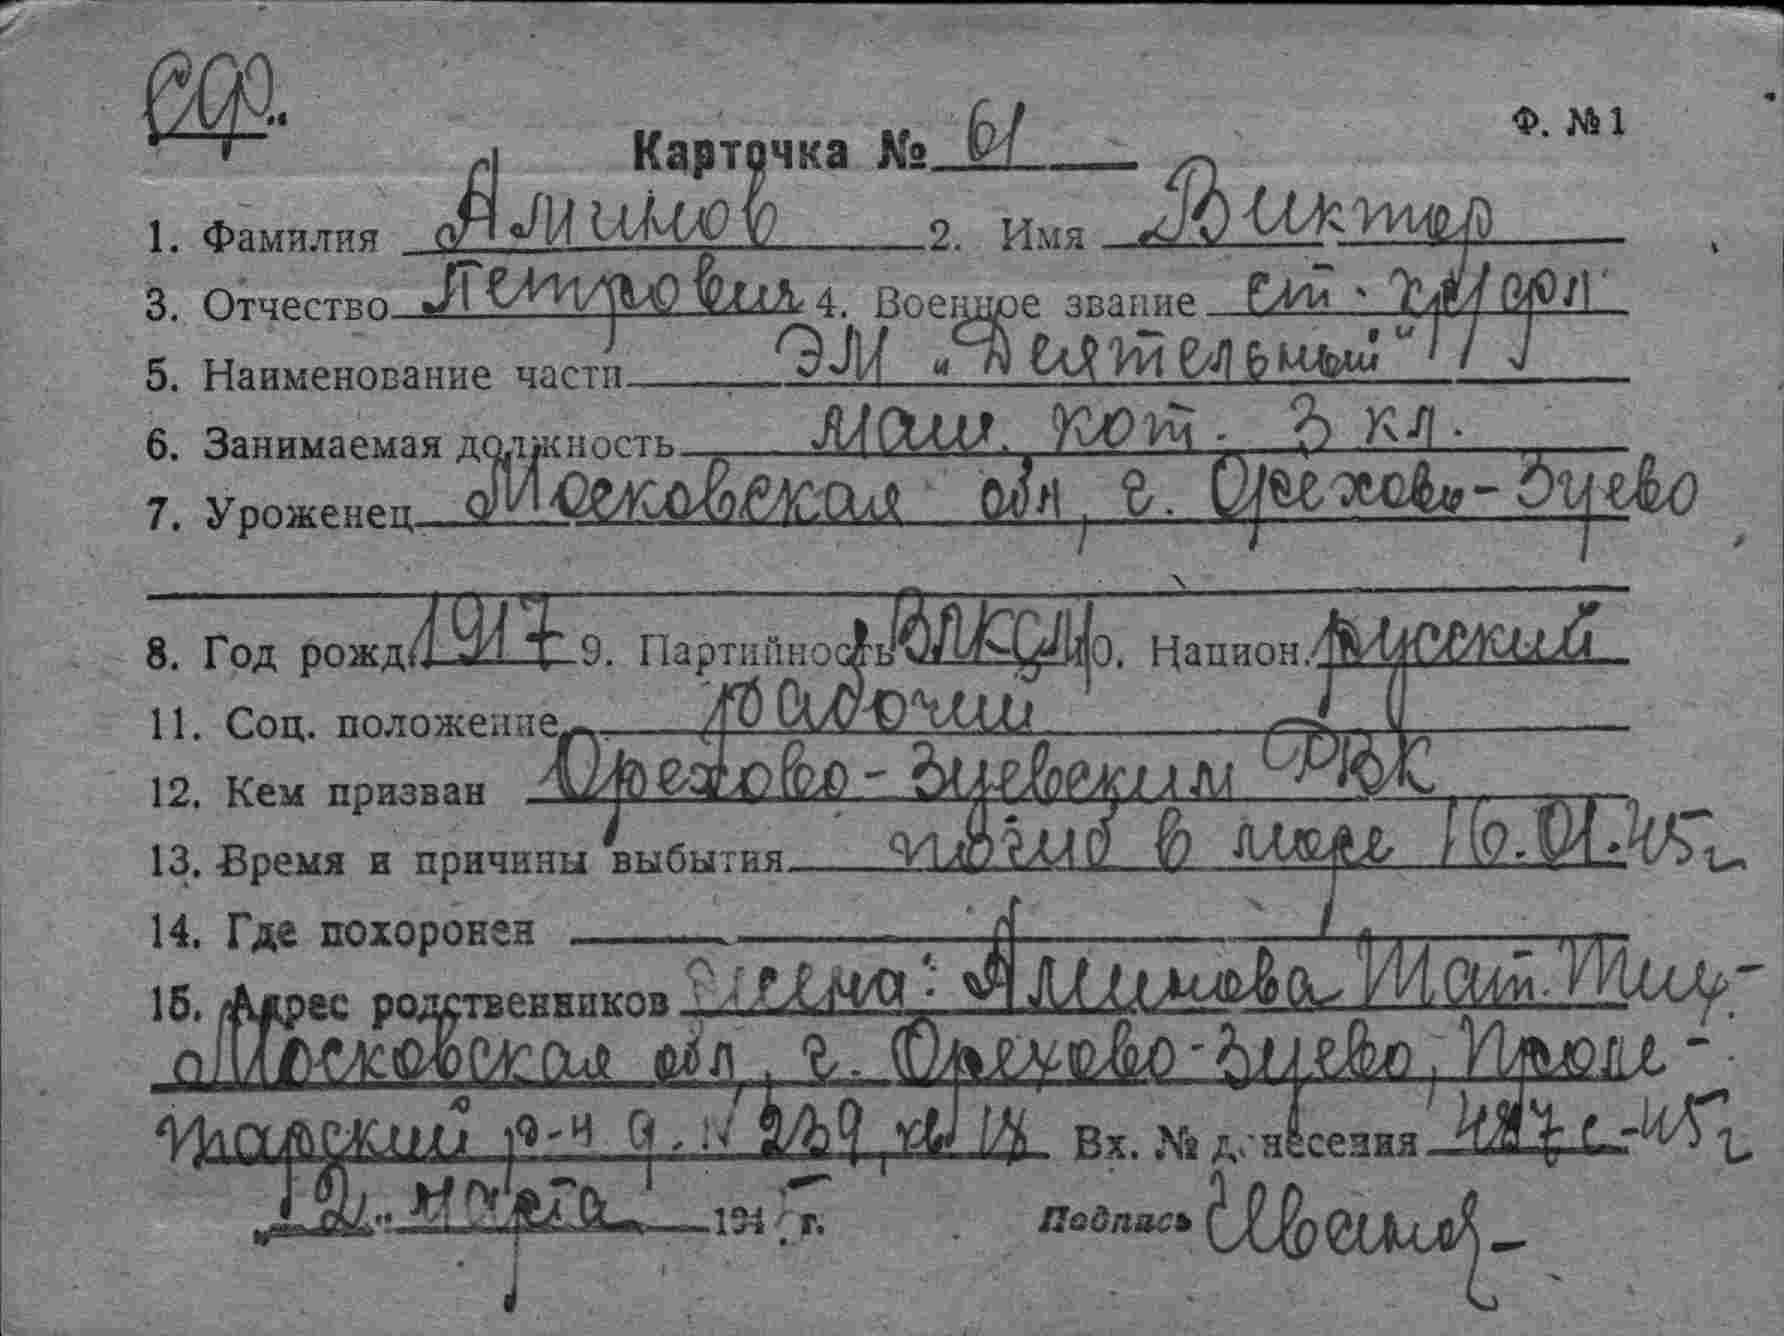 СФ.
Ф. №1
Карточка № 61
1. Фамилия Алимов 2. Имя Виктор
3. Отчество Петрович 4. Военное звание ст. кр/фл
5. Наименование части ЭМ „Деятельный"
6. Занимаемая должность маш. кот. 3 кл.
7. Уроженец Московская обл, г. Орехово-Зуево
8. Год рожд. 1917 9. Партийность ВЛКСМ 10. Национ. русский
11. Соц. положение рабочий
12. Кем призван Орехово-Зуевским РВК
13. Время и причины выбытия погиб в море 16.01.45г
14. Где похоронен
15. Адрес родственников жена: Алимова Тат. Тих.-
Московская обл, г. Орехово-Зуево, Проле-
тарский р-н д. N 239, кв 18 Вх. № донесения 487с-45г
„2" марта 1945 г. Подпись Иванов